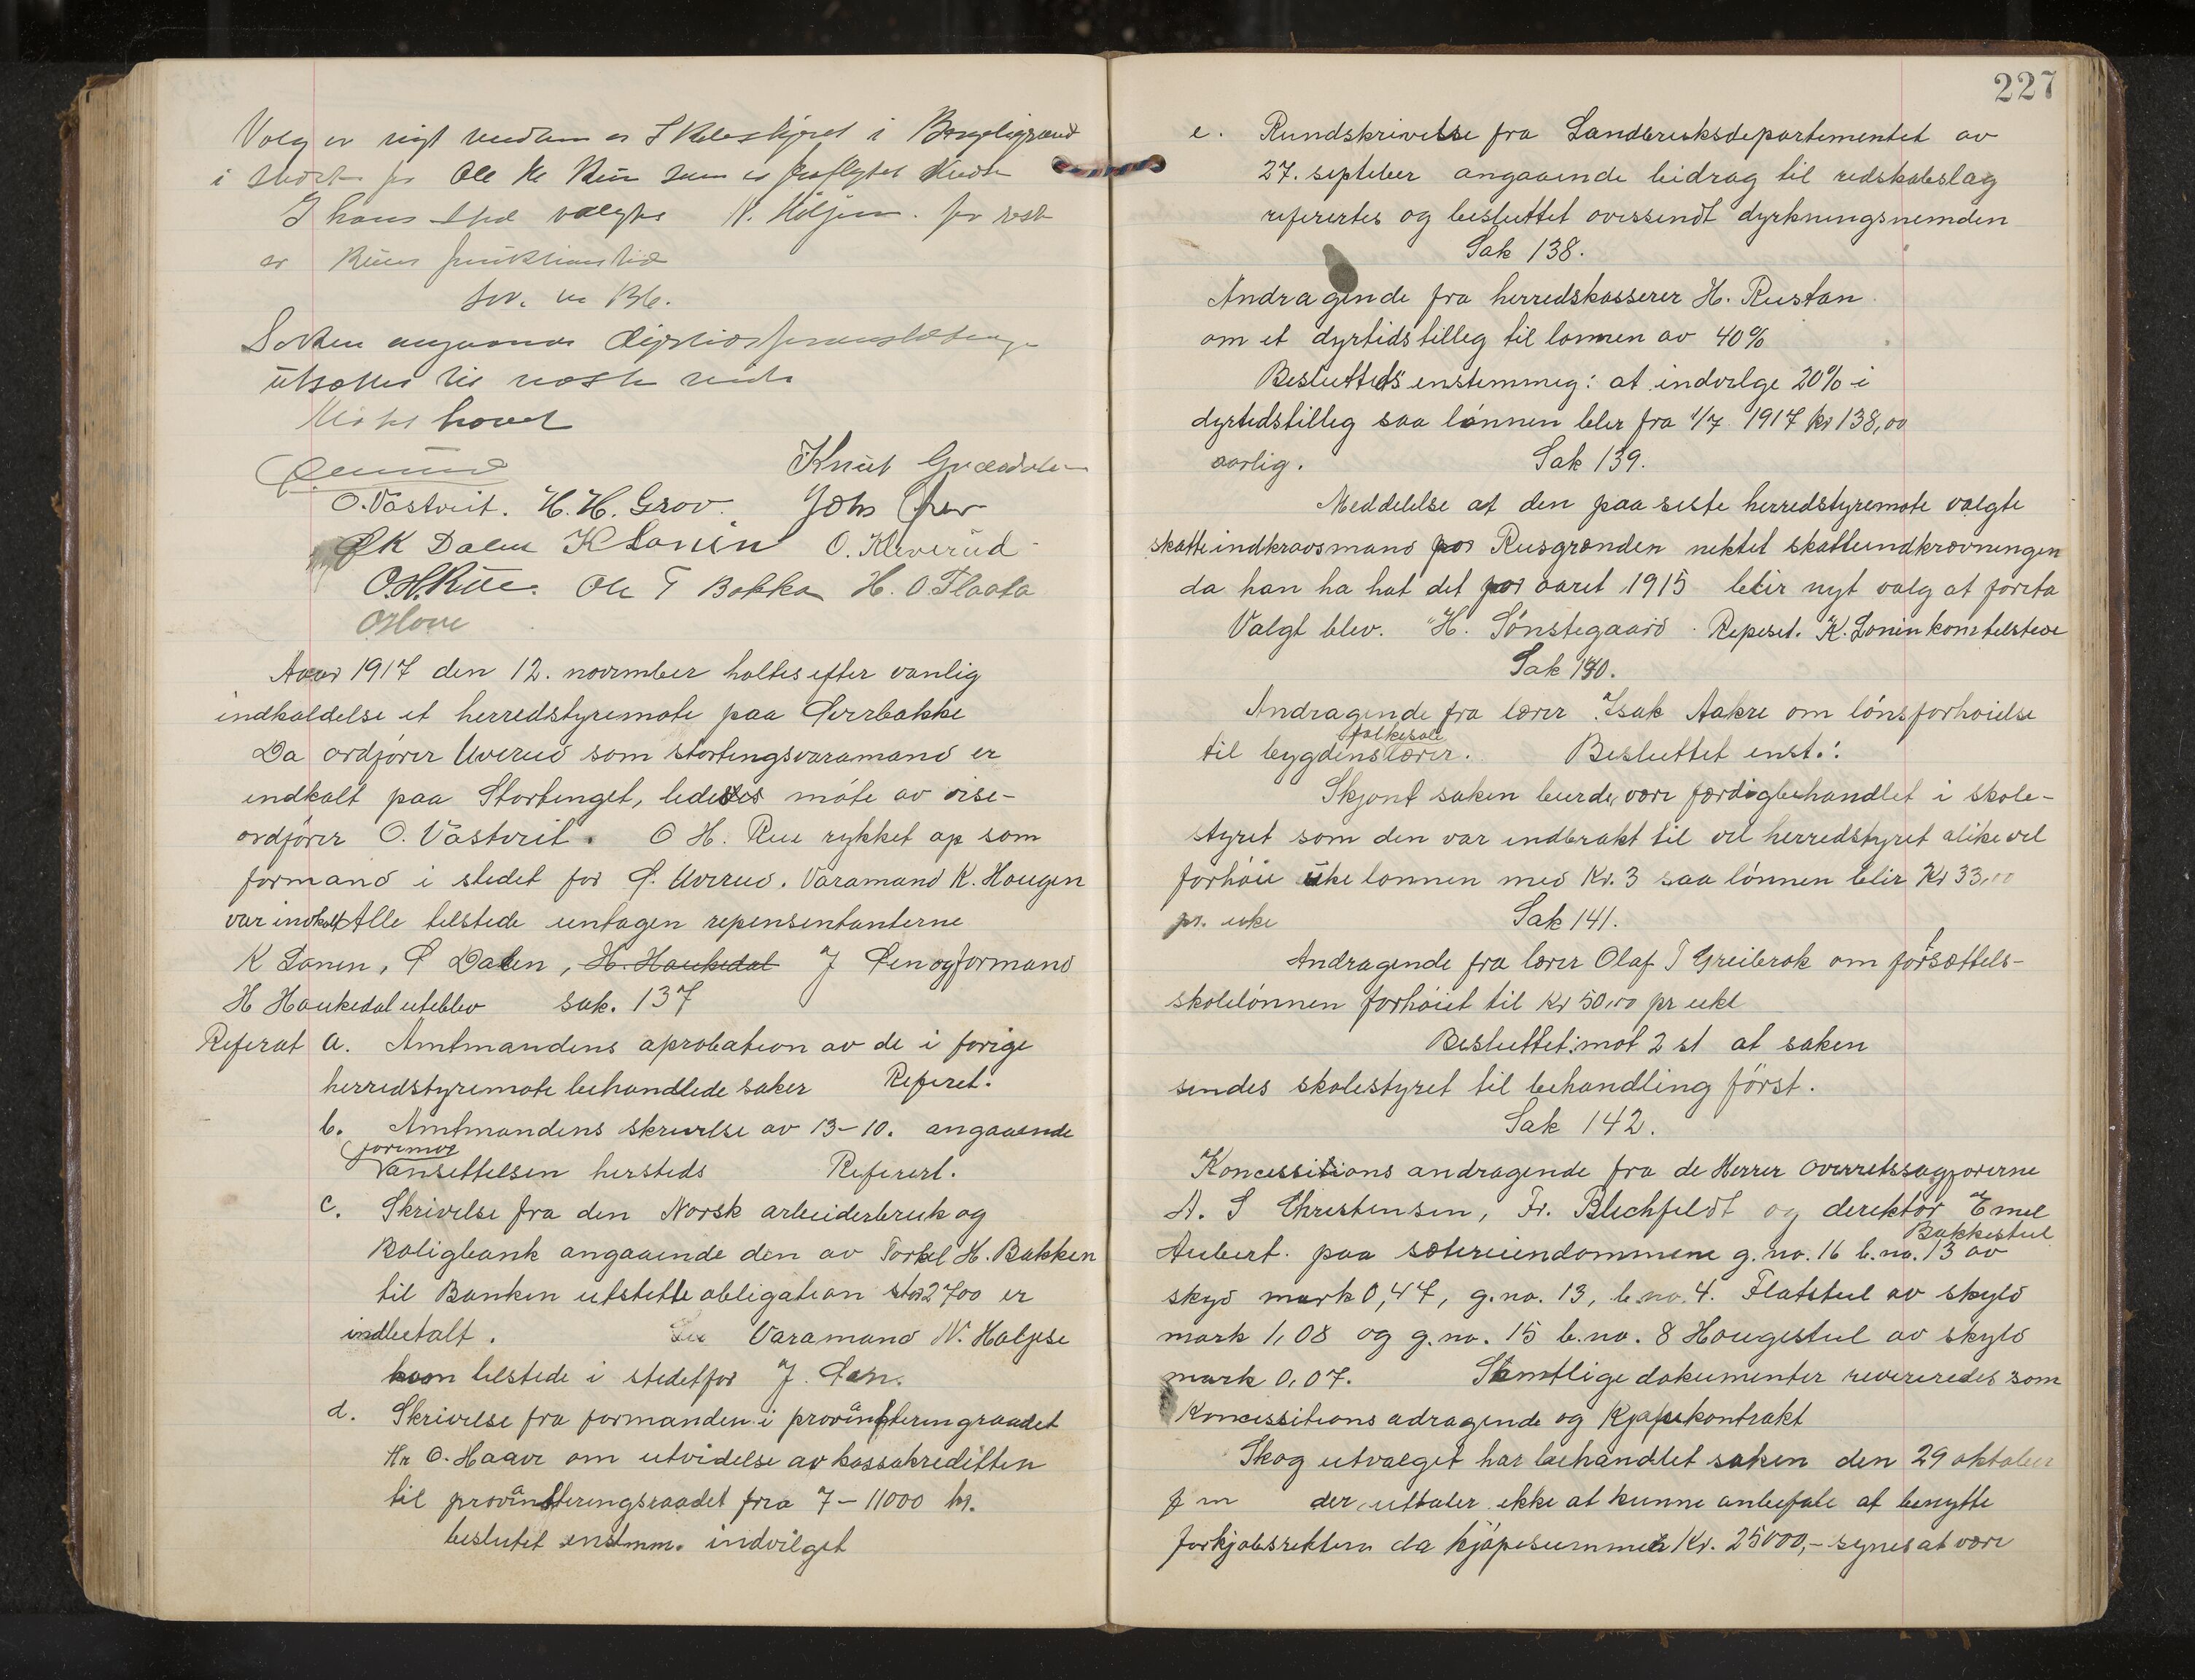 Valg av nyt medlem av Skolestyret i
i stedet for Ole H. Rue som er fraflyttet
I hans sted valgtes N. Höljesen for resten
av Rues funktionstid
Saken angaaende
utsættes til næste møte
Møtet hævet
Knut
O. Vastveit. H. H. Grov. Johs
K Dalen K Lonin O. Kleverud
O. H. Rue. Ole T Bakka H. O. Flaata
O Hove
Aaar 1917 den 12. november holtes efter vanlig
indkaldelse et herredstyremøte paa Særrbakke
Da ordfører Uverud som stortingsvaramand er
indkalt paa Stortinget, ledetes møte av vise-
ordfører O. Vastveit. O H. Rue rykket op som
formand i stedet for P. Uverud. Varamand K. Haugen
var indkalt Alle tilstede untagen repensentanterne
K Lonin, P Dalen, H. Haukedal J Øen og formand
H Haukedal uteblev sak. 137
Referat a. Amtmandens aprobation av de i forige
herredstyremøte behandlede saker Referet.
b. Amtmandens skrivelse av 13-10. angaaende
formue
ansettelsen hersteds Referert.
c. Skrivelse fra den Norsk arbeiderbruk og
Boligbank angaaende den av Torkel H. Bakken
til Banken utstette obligation stor 2700 er
indbetalt. Varamand N. Holjese
kom tilstede i stedetfor J. Øen.
d. Skrivelse fra formanden i provianteringraadet
Hr O. Haave om utvidelse av kassakreditten
til provianteringsraadet fra 7 - 11000 kr.
beslutet enstmm. indvilget
227
e. Rundskrivelse fra Landbruksdepartementet av
27. septeber angaaende bidrag til redskabslag
referertes og besluttet oversendt dyrkningsnemden
Sak 138.
Andragende fra herredskasserer H. Rustan
om et dyrtidstilleg til lonnen av 40%
Besluttedes enstemmig: at indvilge 20% i
dyrtidstilleg saa lønnen blir fra 1/7 1917 kr 138,00
aarlig. Sak 139.
Meddelelse at den paa siste herredstyremøte valgte
skatteindkrævsmand for Rusgrænden nektet skatteindkrævningen
da han ha hat det for aaret 1915 blir nyt valg at foreta
Valgt blev. H. Sønstegaard Repeset. K. Lonin kom telstede
Sak 140.
Andragende fra lærer Isak Aakre om lønsforhøielse
folkesole
til bygdenslærer. Besluttet enst.:
Skjønt saken burde være færdigbehandlet i skole-
styret som den var indbrakt til vil herredstyret alikevel
forhøie uke lønnen med Kr. 3 saa lønnen blir Kr 33,00
pr. uke Sak 141.
Andragende fra lærer Olaf T Greibrok om forsættels-
skolelønnen forhøiet til Kr 50,00 pr uke
Besluttet: mot 2 st at saken
sendes skolestyret til behandling först.
Sak 142.
Koncessitions andragende fra de Herrer overretssagforerne
A. S Christensen, Fr. Blichfeldt og direktør Emil
Bakkestul
Aubert. paa sætereiendommene g.no. 16 b.no. 13 av
skyd mark 0,47, g.no. 13, b.no. 4. Flatstul av skyld
mark 1,08 og g.no. 15 b.no. 8 Haugestul av skyld
mark 0,07. Samtlige dokumenter revereredes som
Koncessitions adragende og Kjøpekontrakt
Skog utvalget har behandlet saken den 29 oktober
f m der uttaler ikke at kunne anbefale at benytte
forkjøbsretten da kjøpesummen Kr. 25000,- synes at være